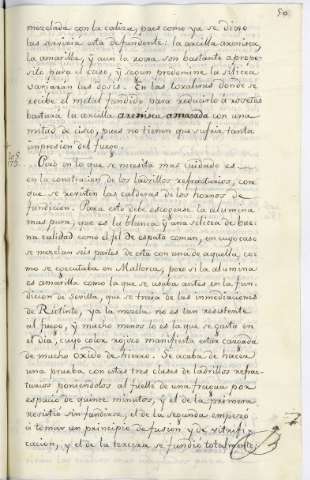 50
mezclada con la caliza, pues como ya se dixo
las serviría esta de fundente: la arcilla arenisca,
la amarilla, y aun la roxa son bastante a propo-
sito para el caso, y segun predomine la silicea
variaran las dosis. En las donde se
recibe el metal fundido para reducirlo a rosetas
bastará la arcilla arenisca amasada con una
mitad de cisco, pues no tienen que sufrir tanta
impresion del fuego.
Pero en lo que se necesita mas cuidado es
en la construccion de los ladrillos refractarios, con
que se revisten las calderas de los hornos de
fundicion. Para esto debe escogerse la alumina
mas pura, que es la blanca, y una silicea de bue-
na calidad como el de espato comun, en cuyo caso
se mezclan seis partes de esta con una de aquella, co-
mo se executaba en Mallorca, pero si la alumina
es amarilla como la que se usaba antes en la fun-
dicion de Sevilla, que se traia de las inmediaciones
de Riotinto, ya la mezcla no es tan resistente
al fuego, y mucho menos lo es la que se gasta en
el dia, cuyo color roxo manifiesta estar cargada
de mucho oxido de hierro. Se acaba de hacer
una prueba con estas tres clases de ladrillos refrac-
tarios poniendolos al fuelle de una fragua por
espacio de quince minutos, y el de la primera
resistio sin fundirse, el de la segunda empezó
á tomar un principio de fusion y de vitrifi-
cacion, y el de la tercera se fundio totalmente.